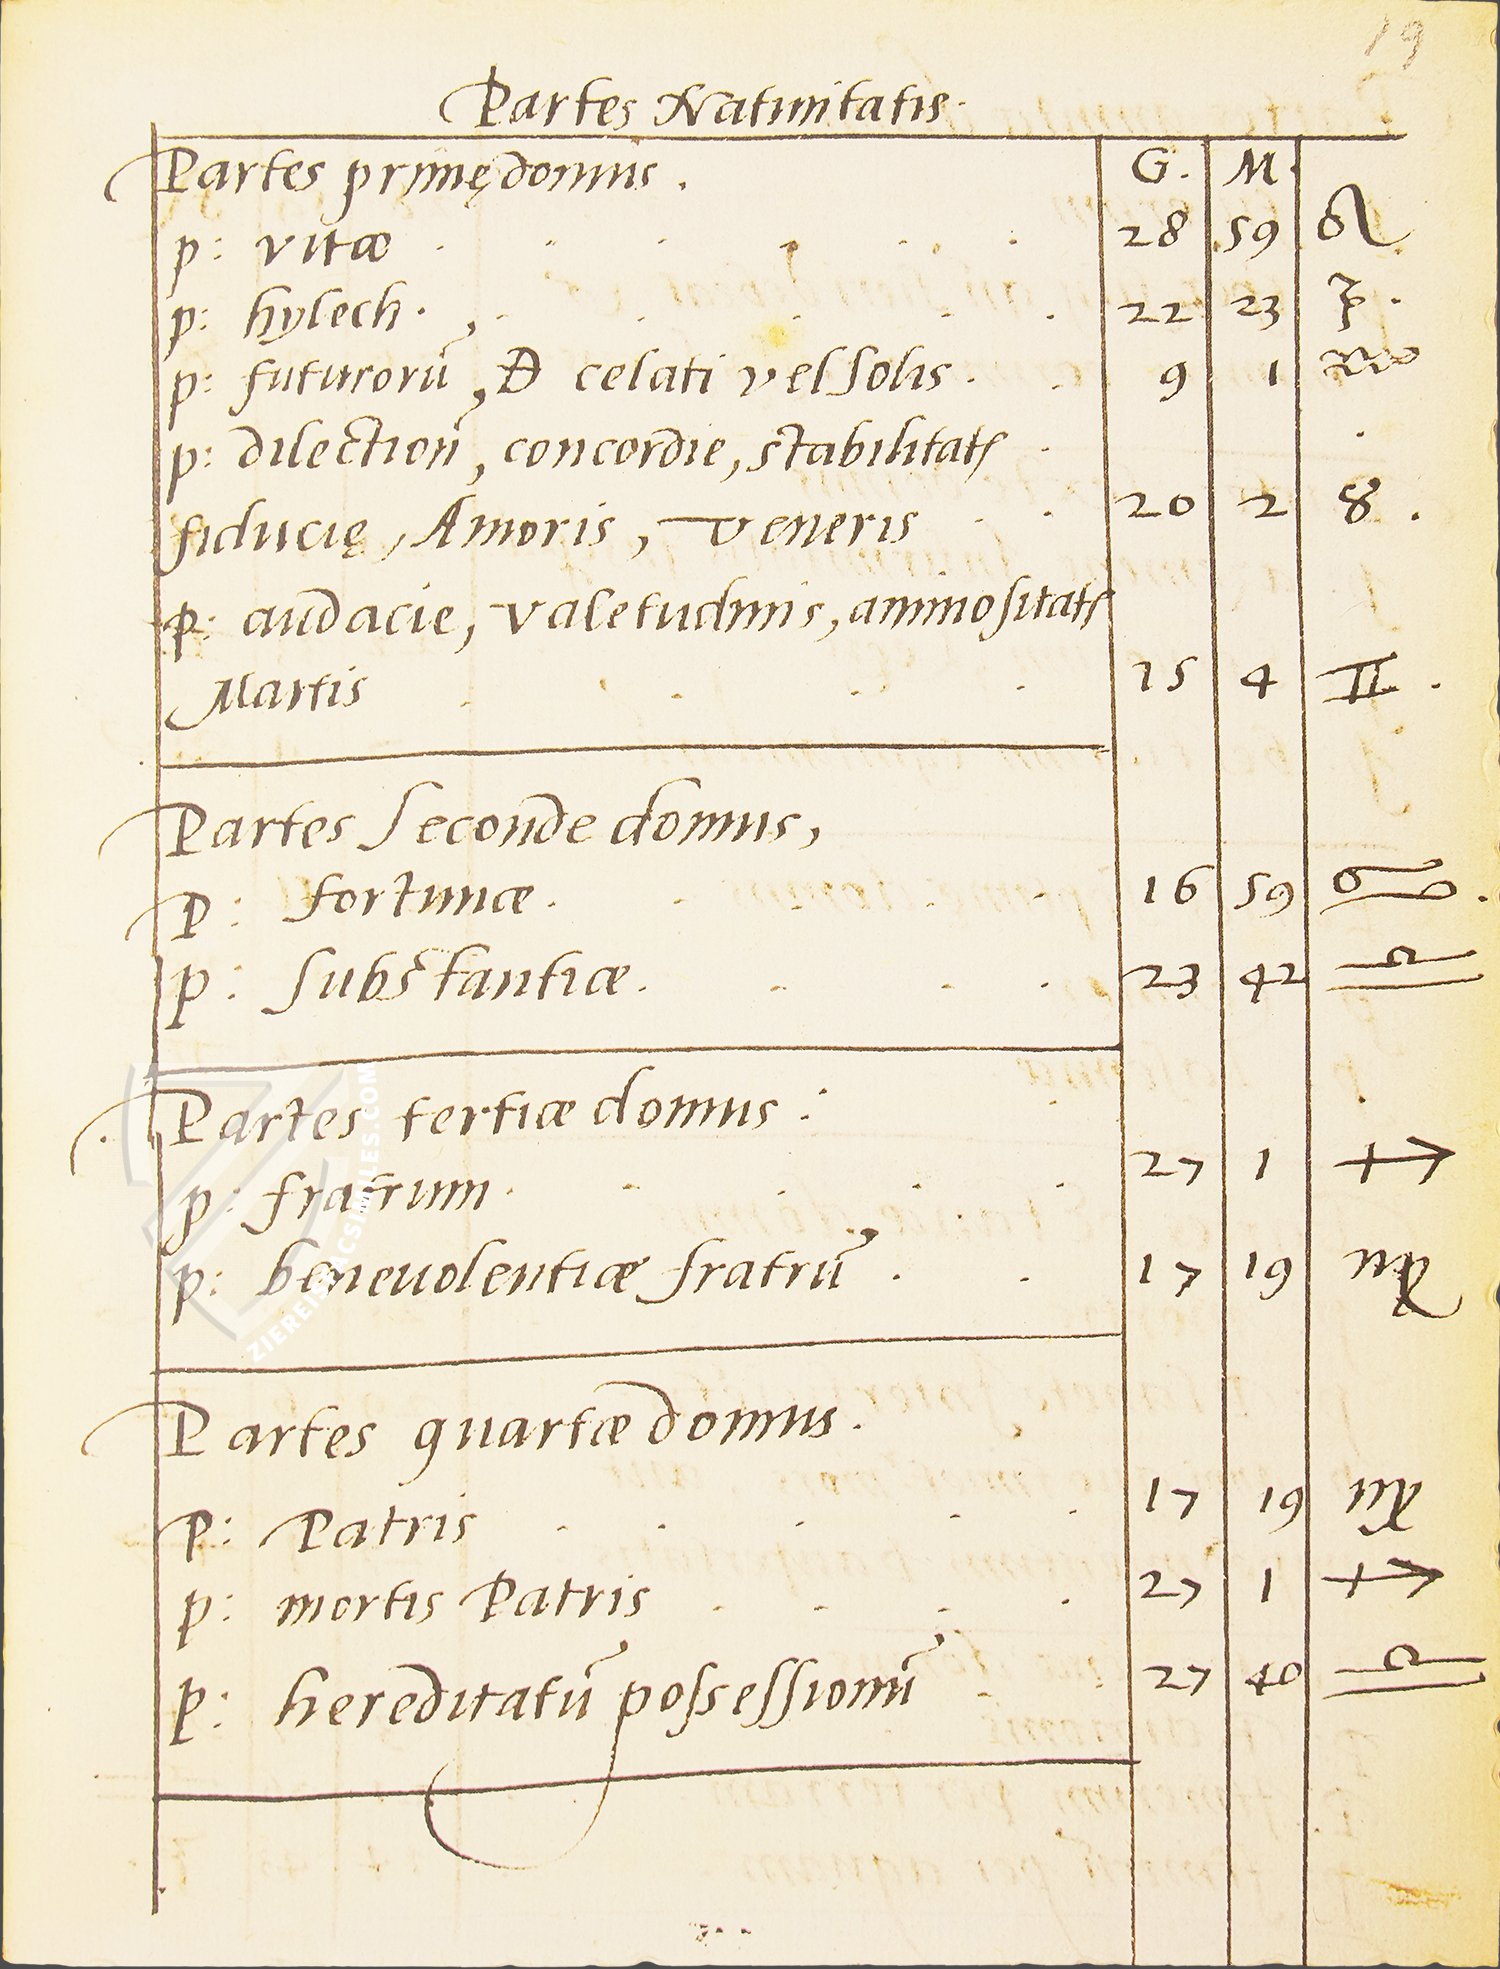 19
Partes Natiuitatis.
Partes primę domus. G. M.
p: vitæ 28 59 ♌
p: hylech. 22 23 ♑.
p: futurorū, & celati vel solis. 9 1 ♒
p: dilectionū, concordie, stabilitatis
fiducię, Amoris, Veneris 20 2 ♉.
p: audacie, valetudinis, animositatis
Martis 25 4 ♊.
Partes Seconde domus,
P: fortunæ. 16 59 ♋.
p: substantiæ. 23 42 ♎
Partes tertiæ domus:
p: fratrum. 27 1 ♐
p: beneuolentiæ fratrū. 17 19 ♍
Partes quartæ domus.
P: Patris 17 19 ♍
p: mortis Patris 27 1 ♐
p: hereditatū possessionū 27 40 ♎
ZIEREIS FACSIMILES.COM